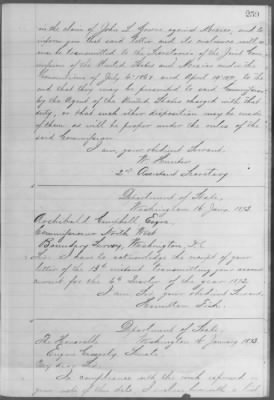 259
in the claim of John L. Greer against Mexico, and to
inform you that said letter and its enclosures will
now be transmitted to the Secretaries of the Joint Com-
mission of the United States and Mexico under the
Convention of July 4, 1868, and April 19, 1871, to the
end that they may be presented to said Commission
by the Agent of the United States charged with that
duty, or that such other disposition may be made
of them as will be proper under the rules of the
said Commission.
I am, your obedient Servant,
W. Hunter
2nd Assistant Secretary
Department of State,
Washington 16 Jany. 1873
Archibald Campbell, Esqre.
Commissioner North West
Boundary Survey, Washington, D.C.
Sir: I have to acknowledge the receipt of your
letter of the 13th instant transmitting your account
current for the 4th Quarter of the year 1872.
I am, Sir, your Obedient Servant,
Hamilton Fish.
Department of State,
Washington 16 January 1873
The Honorable
Eugene Casserly, Senate
My dear Sir:
In compliance with the wish expressed in
your note of this date, I return herewith a